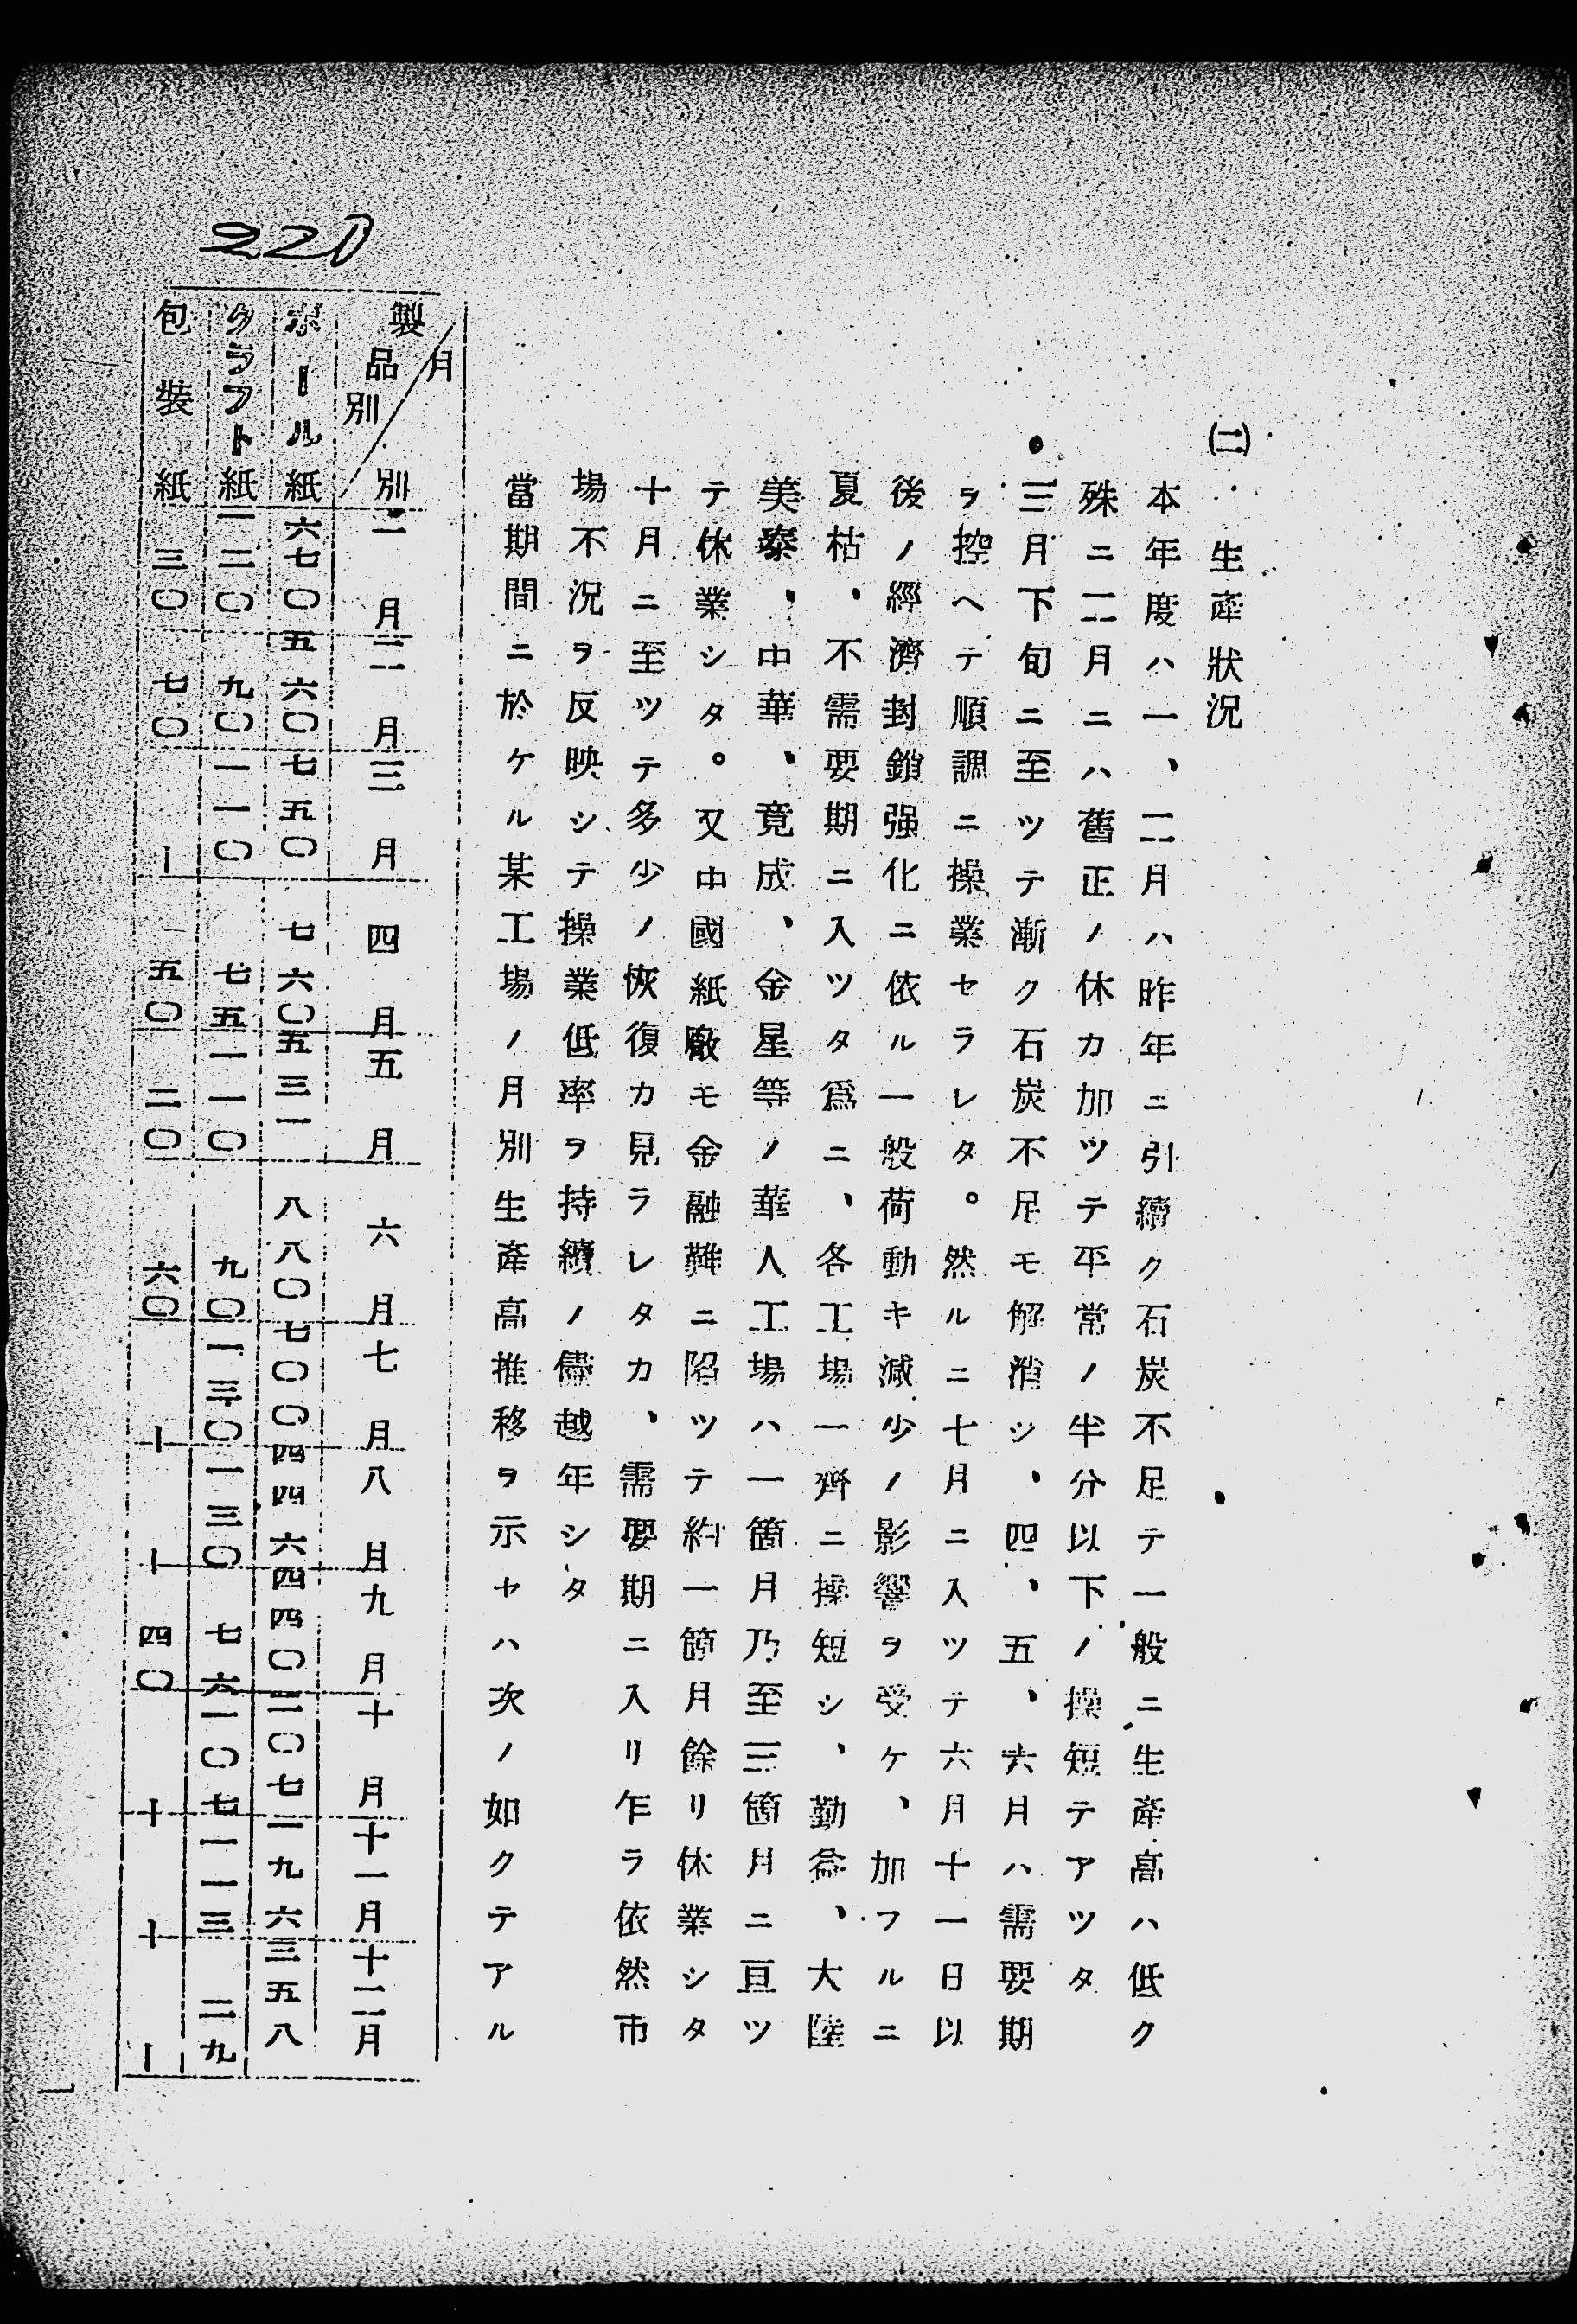 (二) 生產狀況
本年度ハ一、二月ハ昨年ニ引續ク石炭不足テ一般ニ生產高ハ低ク
殊ニ二月ニハ舊正ノ休カ加ツテ平常ノ半分以下ノ操短テアツタ
三月下旬ニ至ツテ漸ク石炭不足モ解消シ、四、五、六月ハ需要期
ヲ控ヘテ順調ニ操業セラレタ。然ルニ七月ニ入ツテ六月十一日以
後ノ經濟封鎖强化ニ依ル一般荷動キ減少ノ影響ヲ受ケ、加フルニ
夏枯、不需要期ニ入ツタ爲ニ、各工場一齊ニ操短シ、勤益、大陸
美泰、中華、竟成、金星等ノ華人工場ハ一箇月乃至三箇月ニ亘ツ
テ休業シタ。又中國紙廠モ金融難ニ陷ツテ約一箇月餘リ休業シタ
十月ニ至ツテ多少ノ恢復カ見ラレタカ、需要期ニ入リ乍ラ依然市
場不況ヲ反映シテ操業低率ヲ持續ノ儘越年シタ
當期間ニ於ケル某工場ノ月別生產高推移ヲ示セハ次ノ如クテアル
製品別 月別 一月 二月 三月 四月 五月 六月 七月 八月 九月 十月 十一月 十二月
ボール紙 六七〇 五六〇 七五〇 七六〇 五三一 八八〇 七〇〇 四四六 四四〇 二〇七 一九六 三五八
クラフト紙 一二〇 九〇 一一〇 七五 一一〇 九〇 一三〇 一三〇 七六 一〇七 一一三 二九
包裝紙 三〇 七〇 ー 五〇 二〇 六〇 ー ー 四〇 ー ー ー
220